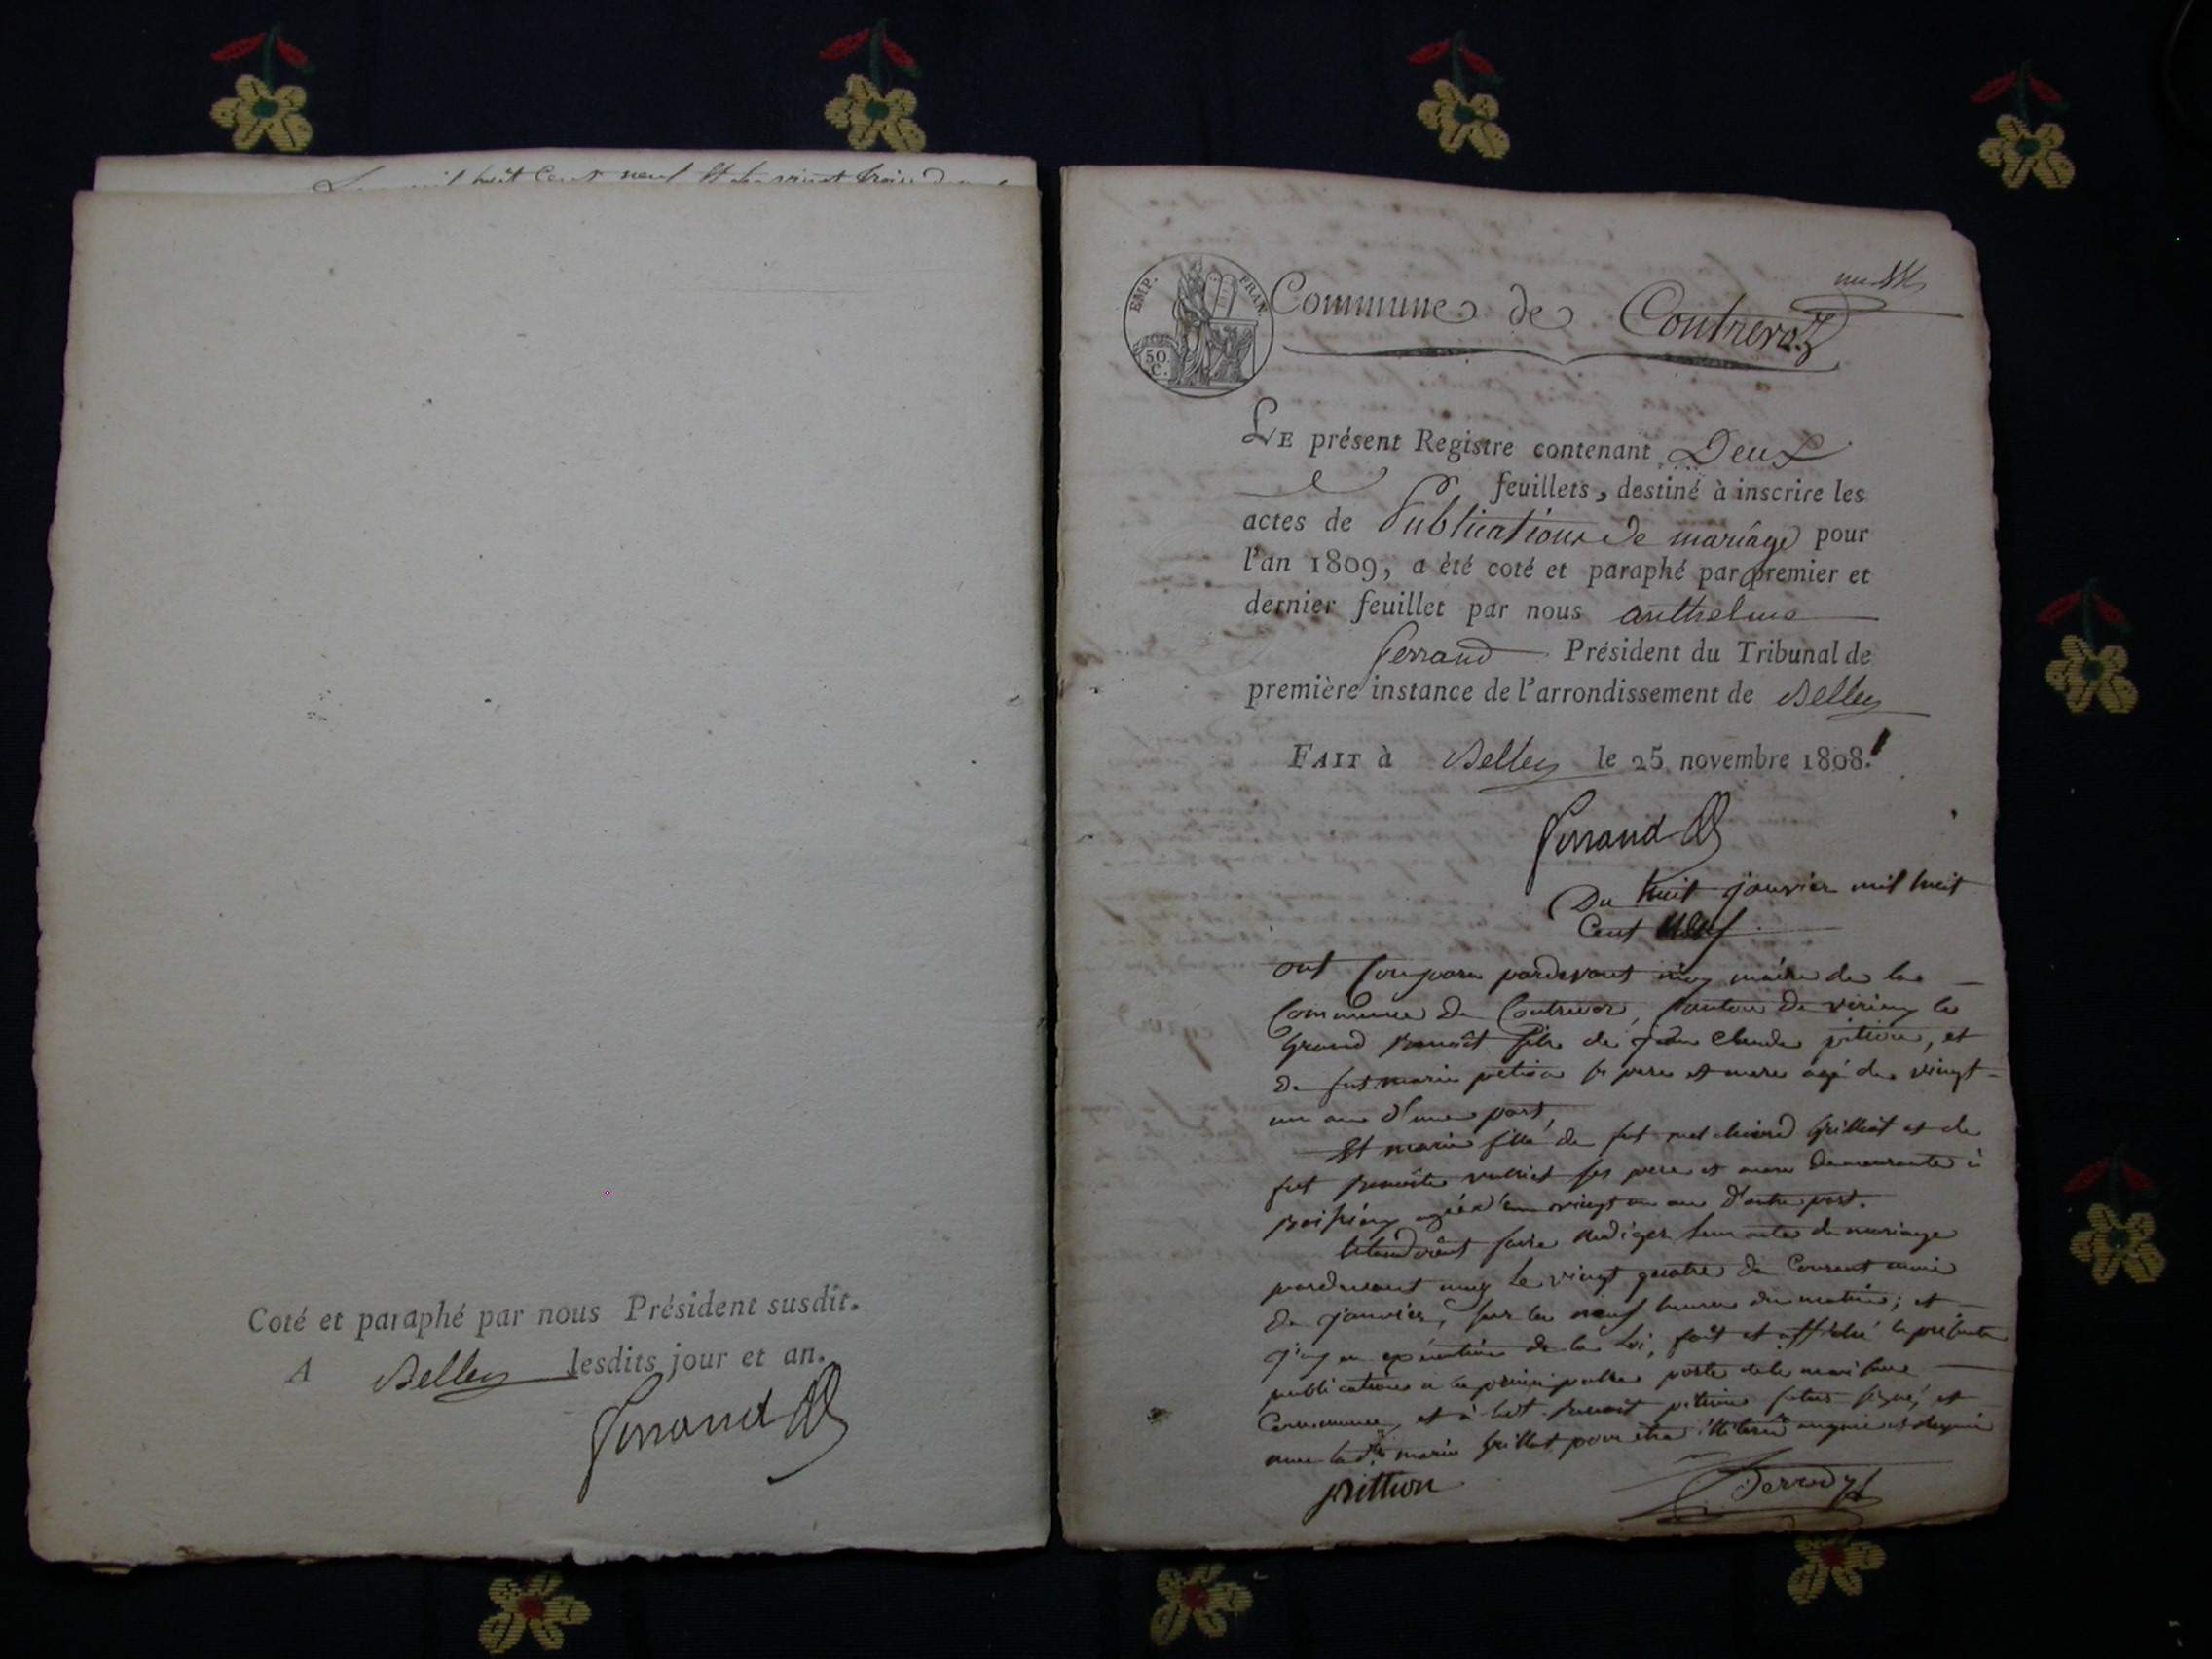 mil huit cent neuf et le vingt trois
Coté et paraphé par nous Président susdit.
A Belley lesdits jour et an.
Ferrand
EMP. FRAN.
50. C.
Commune de Contrevoz
LE présent Registre contenant Deux
feuillets, destiné à inscrire les
actes de Publications de mariage pour
l'an 1809, a été coté et paraphé par premier et
dernier feuillet par nous anthelme
ferrand Président du Tribunal de
première instance de l'arrondissement de Belley
FAIT à Belley le 25 novembre 1808.
Ferrand
Du huit janvier mil huit
Cent neuf
ont comparu pardevant moy maire de la
Commune de Contrevoz, Canton de virieu le
grand Benoît fils de jean Claude pition, et
de fut marie pition ses pere et mere agé de vingt
un an d'une part,
Et marie fille de fut melchiord Grillot et de
fut Benoite ses pere et mere demeurante à
agée d'un vingt un an d'autre part.
faire Rediger leur acte de mariage
pardevant moy le vingt quatre du Courant mois
de janvier, sur les neuf heures du matin; et
j'ay en exécution de la Loi, fait et affiché la présente
publication a la principalle porte de la maison
Commune, et à led. Benoit pition futur signé, et
non lad.te marie Grillot pour être illiterée enquise et
pittion